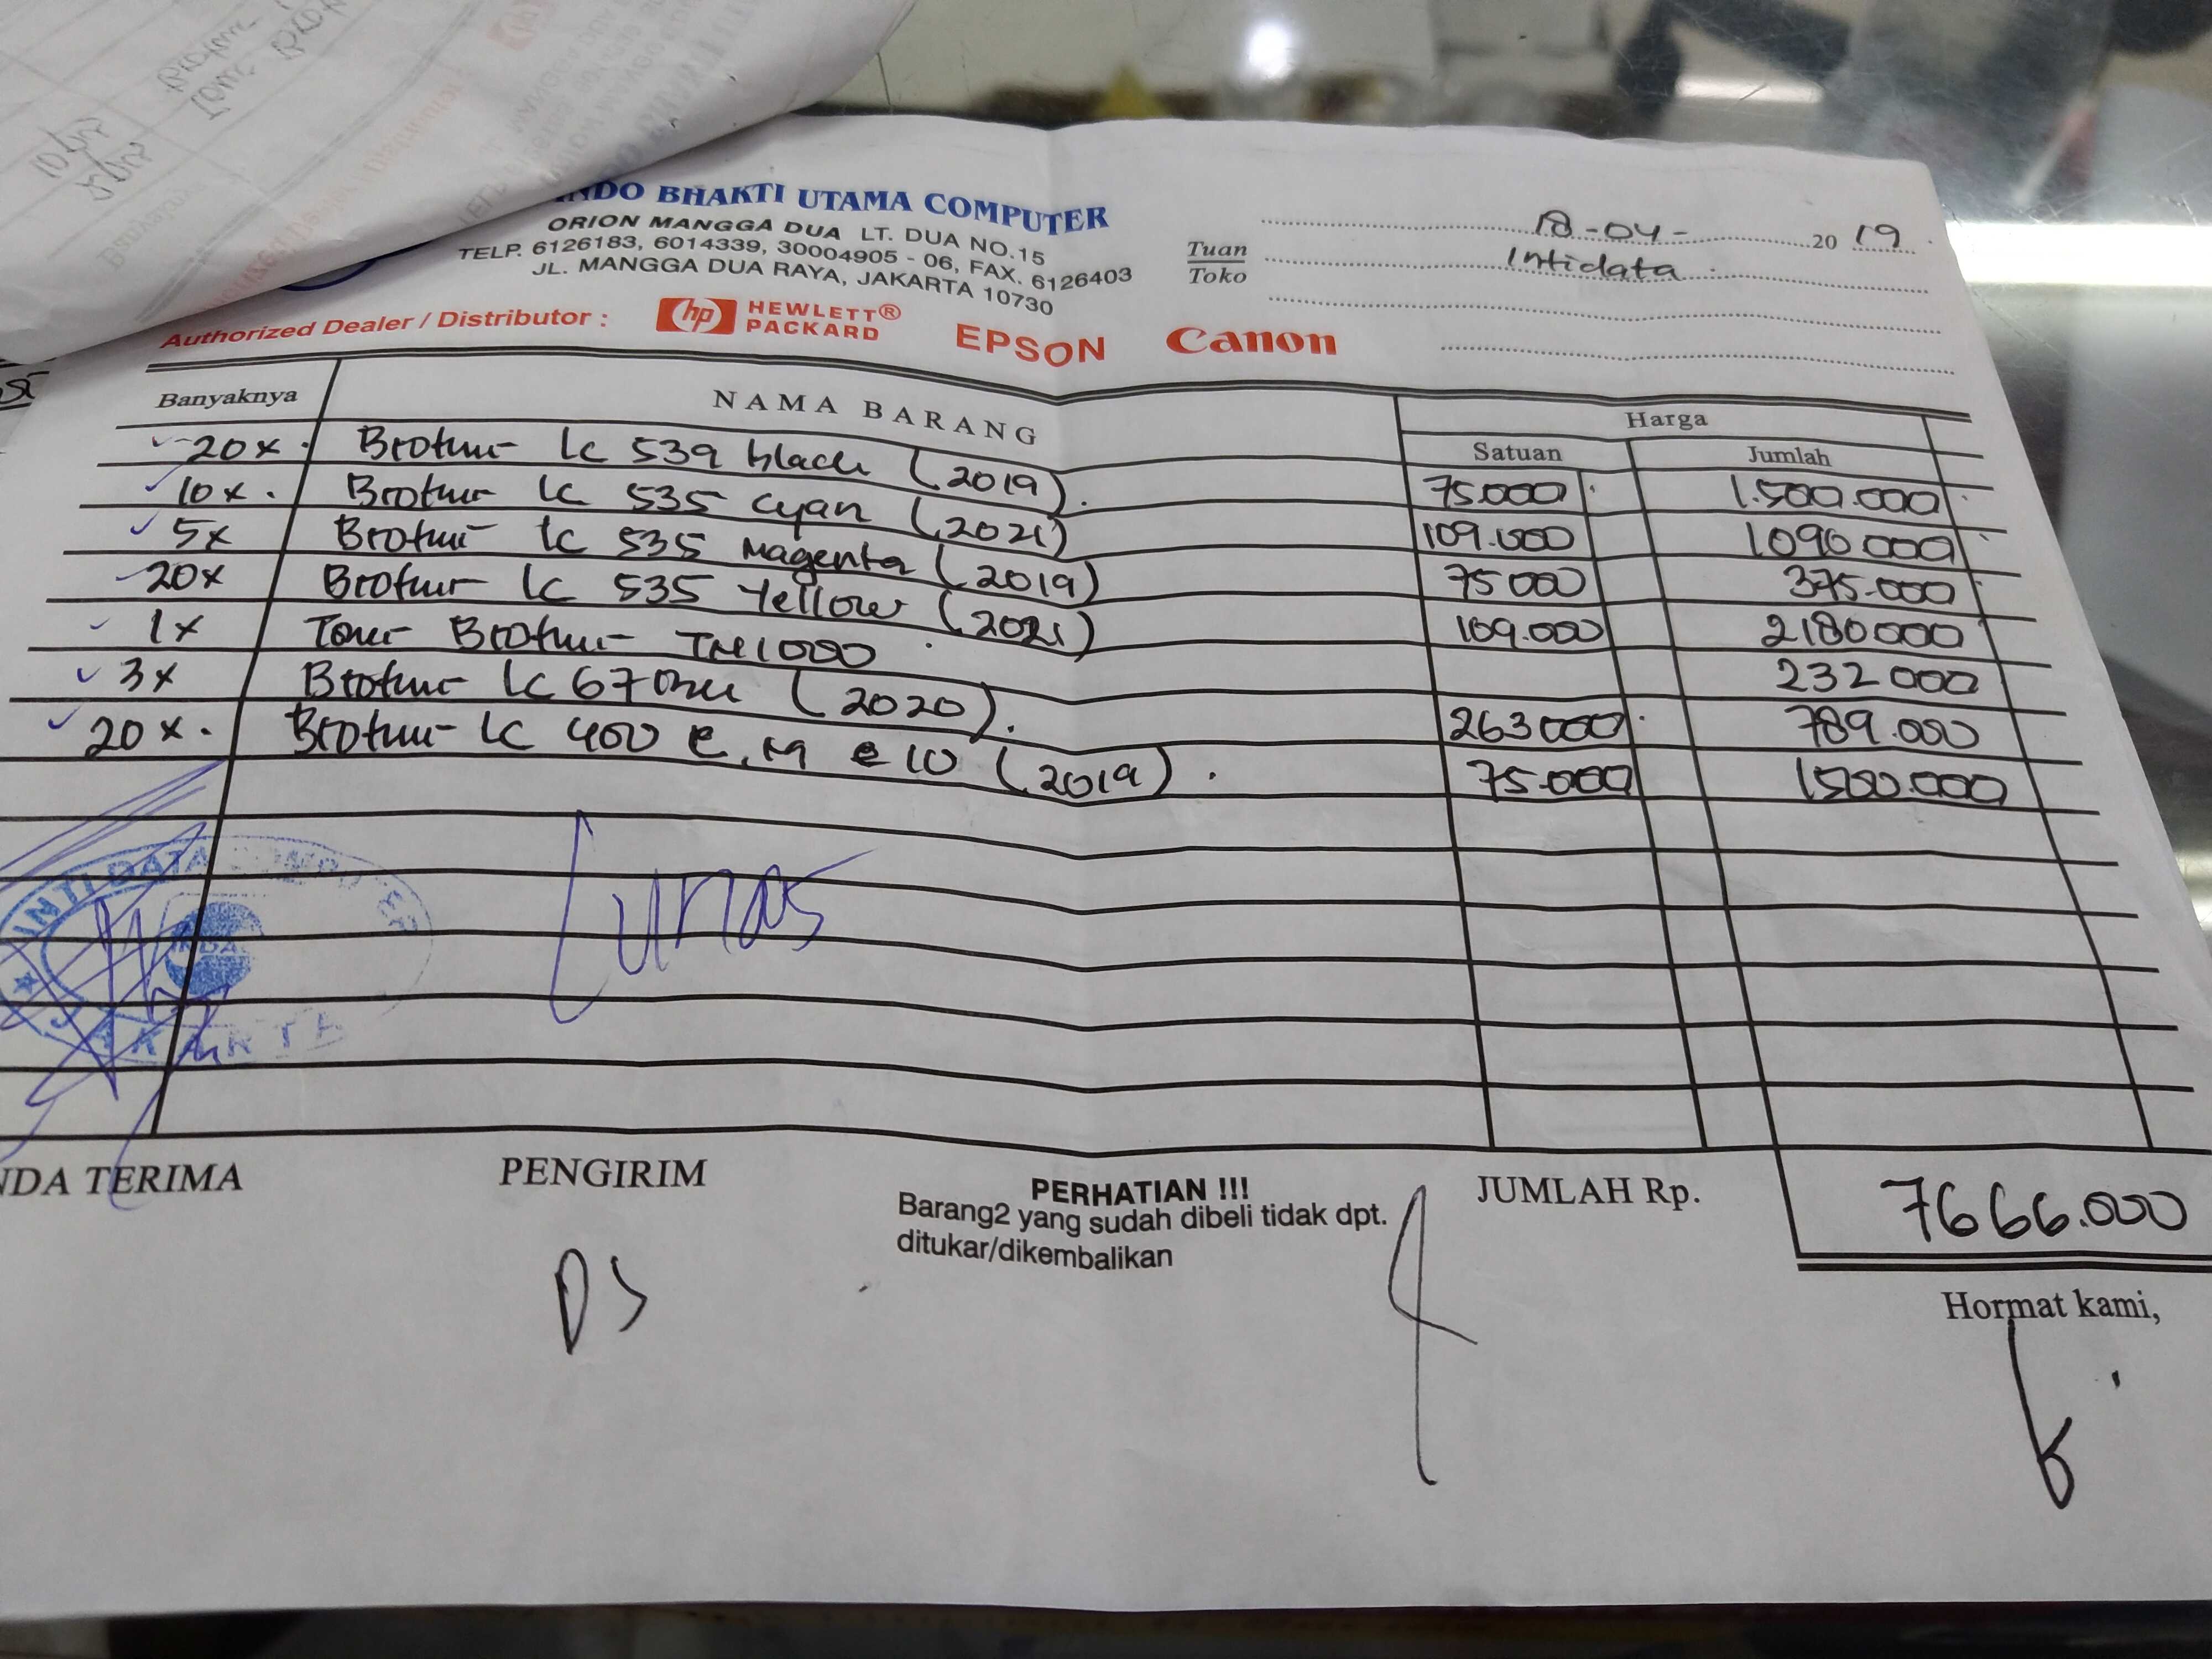 NDO BHAKTI UTAMA COMPUTER
ORION MANGGA DUA LT. DUA NO.15
TELP. 6126183, 6014339, 30004905 - 06, FAX. 6126403
JL. MANGGA DUA RAYA, JAKARTA 10730
18-04- 2019
Tuan
Toko
Intidata
Authorized Dealer / Distributor : hp HEWLETT® PACKARD EPSON Canon
Banyaknya NAMA BARANG Harga
Satuan Jumlah
20x Brother LC 539 black (2019). 75.000 1.500.000
10x. Brother LC 535 Cyan (2021) 109.000 1090000
5x Brother LC 535 Magenta (2019) 75000 375.000
20x Brother LC 535 Yellow (2021) 109.000 2180000
1x Toner Brother TN1000 232000
3x Brother LC 67 (2020). 263000 789.000
20x. Brother LC 400 (2019). 75.000 1500.000
INTI DATA
JAKARTA
Lunas
NDA TERIMA PENGIRIM
PERHATIAN !!!
Barang2 yang sudah dibeli tidak dpt.
ditukar/dikembalikan
JUMLAH Rp. 7666.000
Hormat kami,